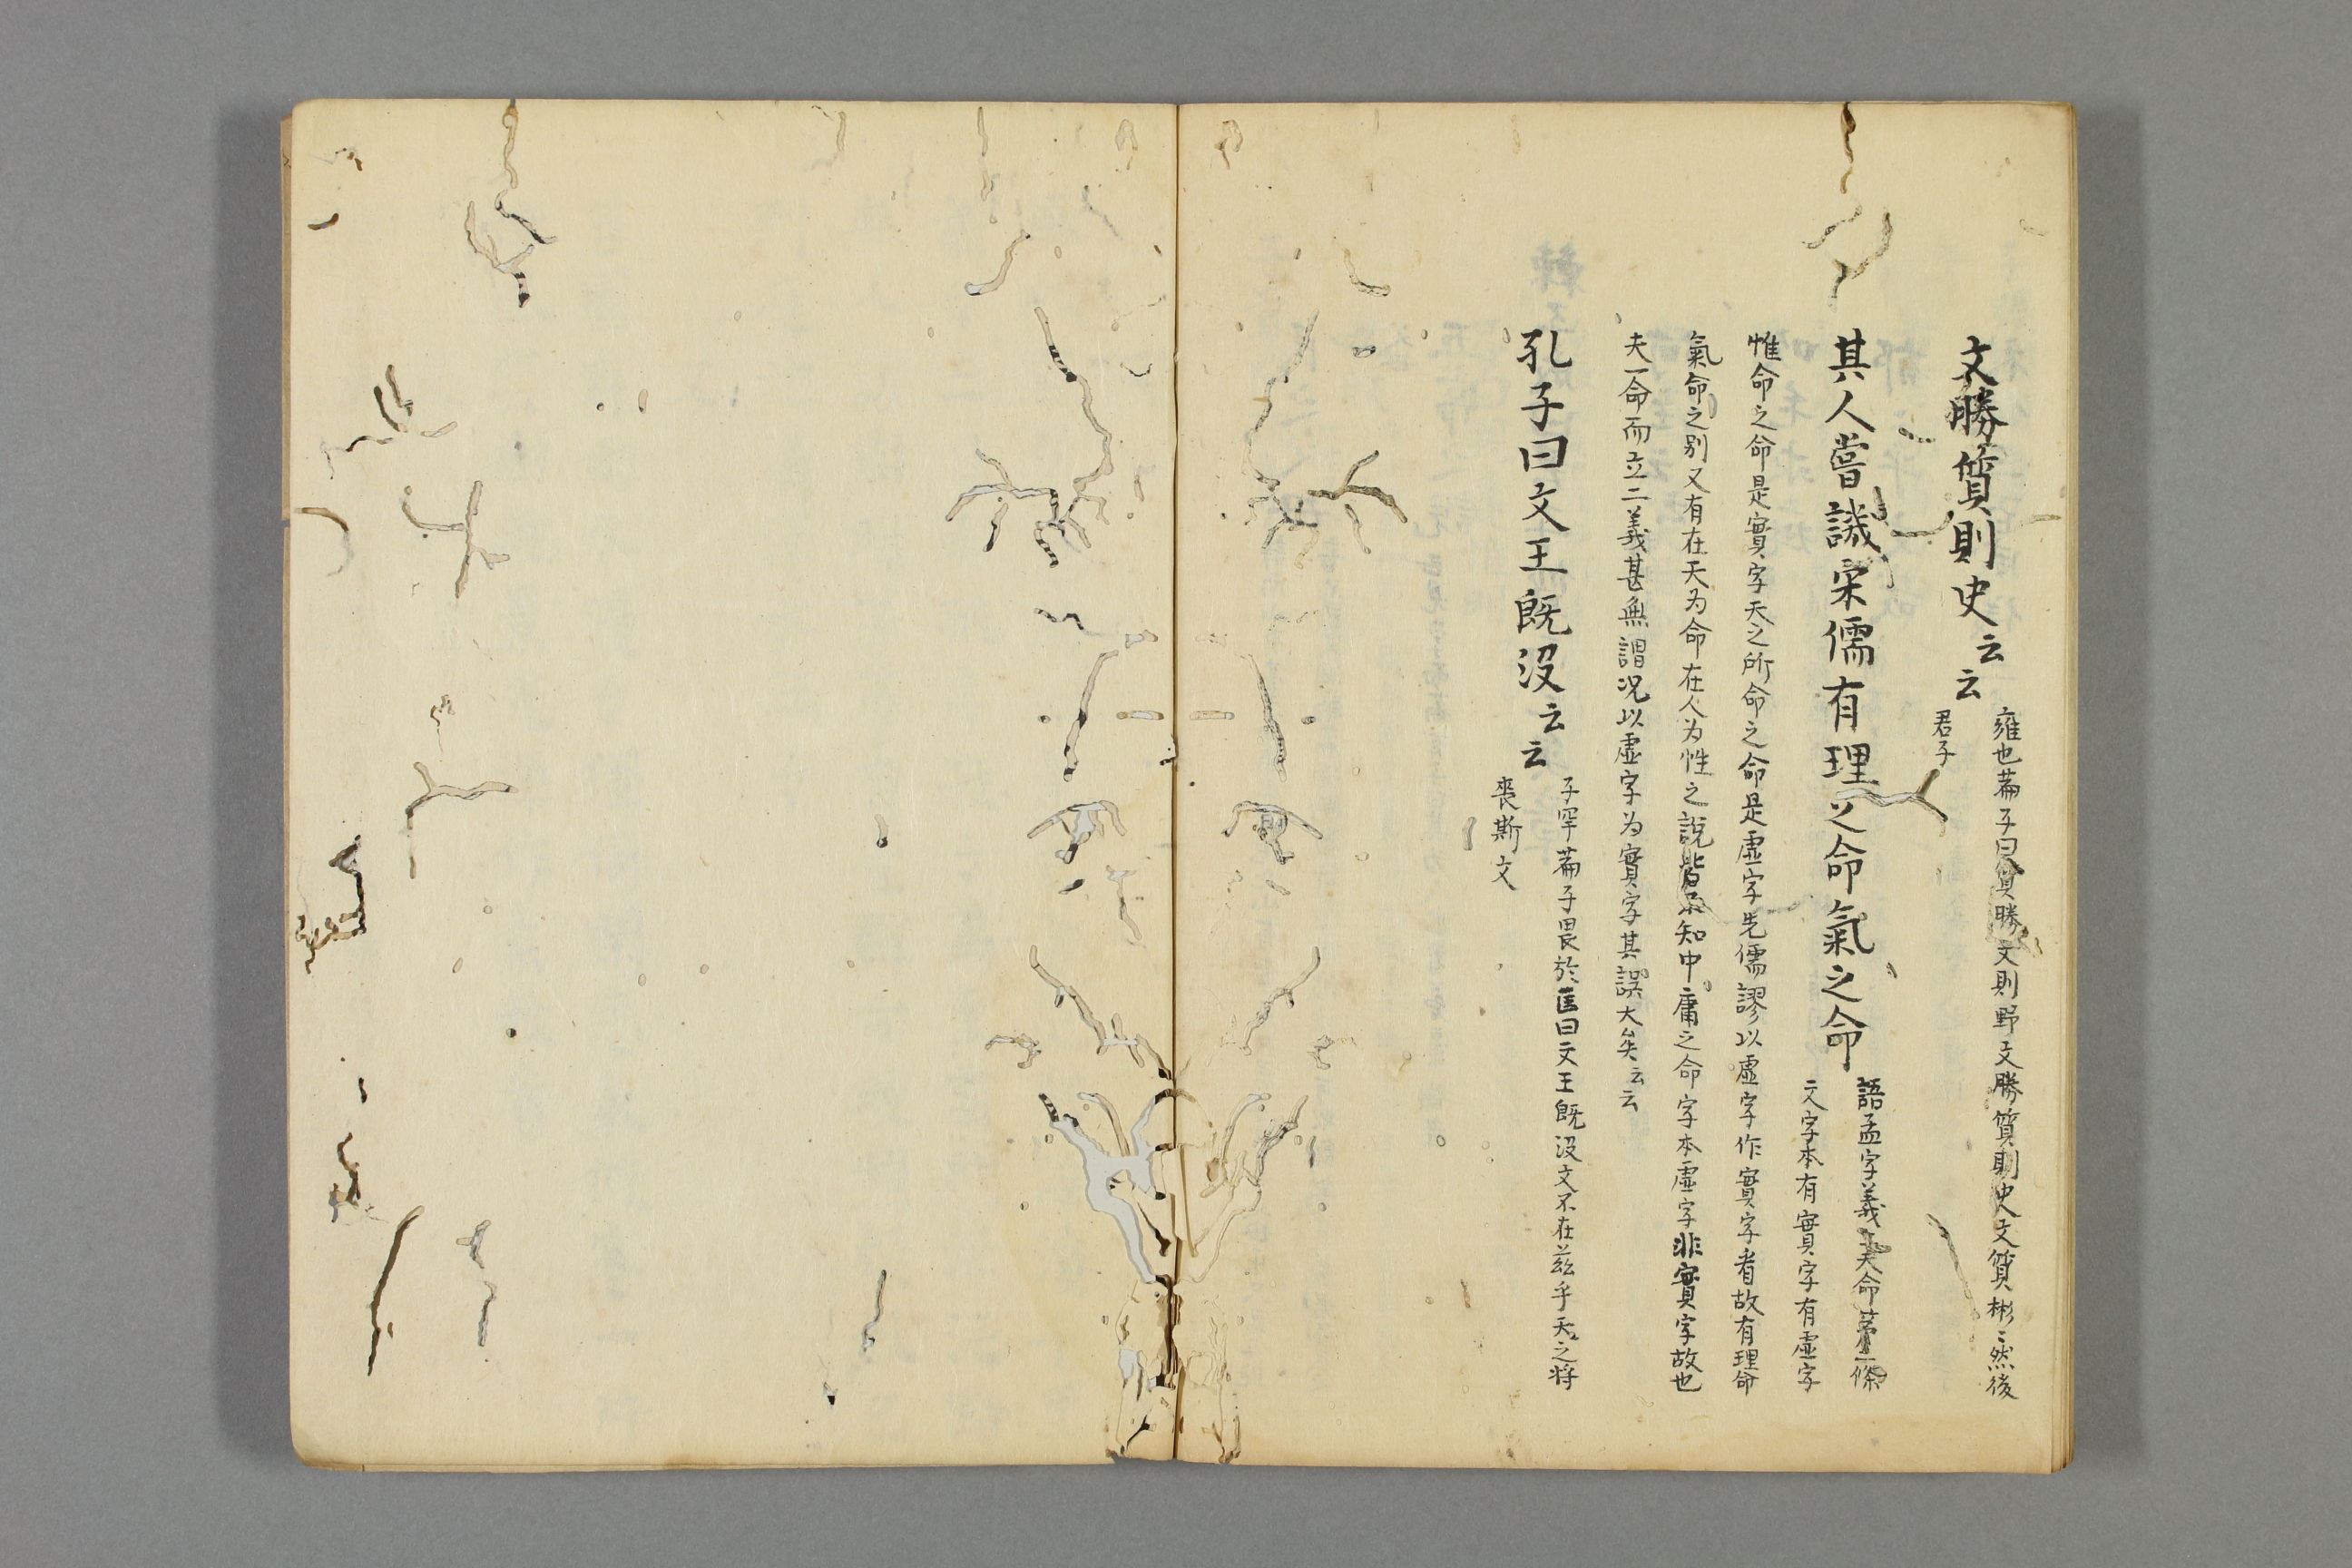 文勝質則史云云
雍也萹子曰質勝文則野文勝質則史文質彬〻然後
君子
其人嘗譏宋儒有理之命氣之命
語孟字義天命第二條
文字本有實字有虛字
惟命之命是實字天之所命之命是虛字先儒謬以虛字作實字看故有理命
氣命之別又有在天为命在人为性之說皆不知中庸之命字本虛字非實字故也
夫一命而立二義甚無謂况以虛字为實字其誤大矣云云
孔子曰文王既没云云
子罕萹子畏於匡曰文王既没文不在茲乎天之将
喪斯文